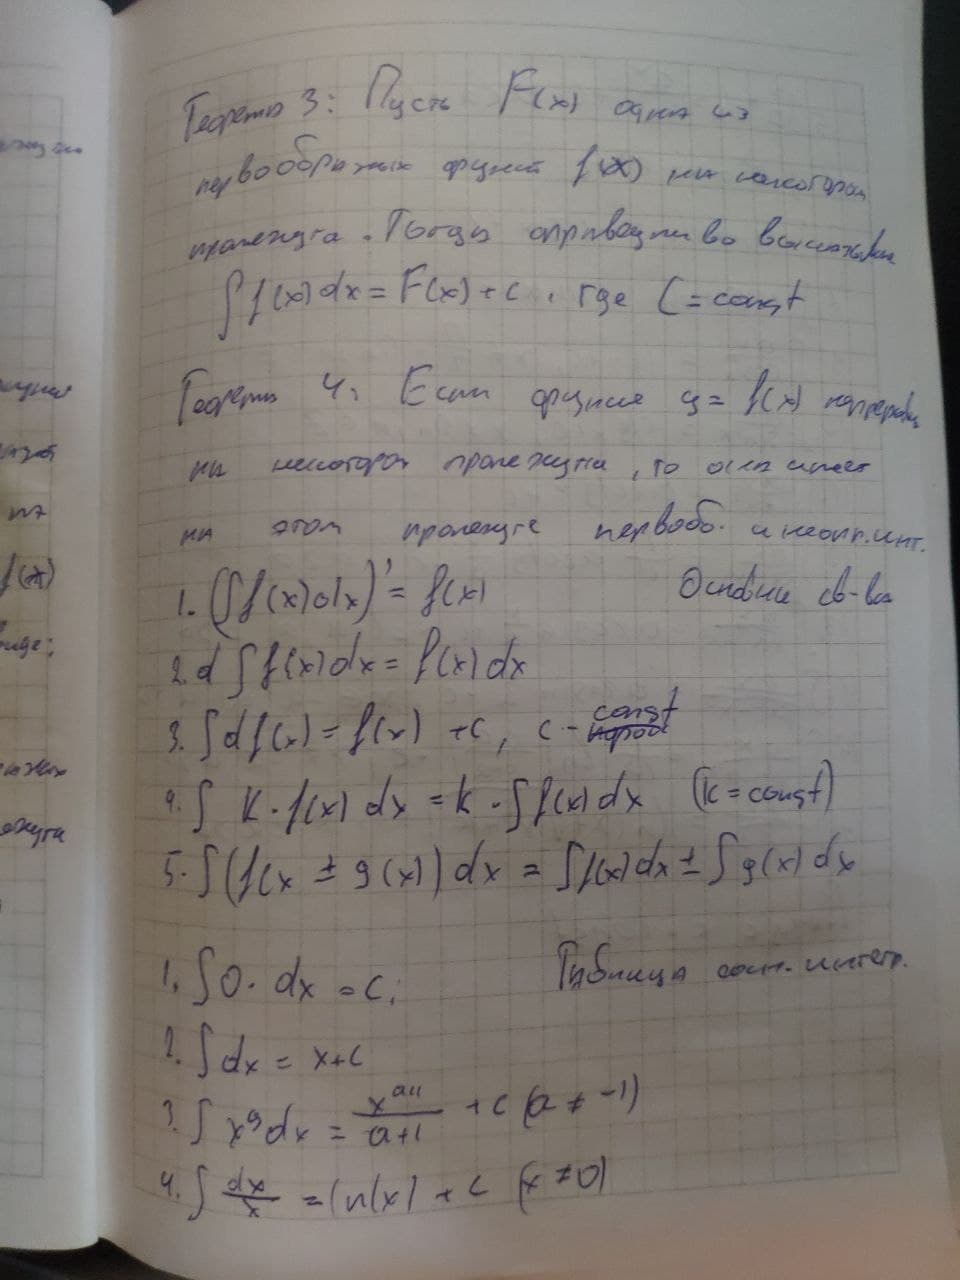 Теорема 3: Пусть F(x) одна из
первообразных функц f(x) на некотором
промежутка. Тогда справедливо
∫f(x)dx = F(x) + c, где C = const
Теорема 4. Если функция y = f(x) непрерывн
на некотором промежутка, то она имеет
на этом промежутке первооб. и неопр. инт.
1. (∫f(x)dx)' = f(x) Основные св-ва
2. d ∫f(x)dx = f(x)dx
3. ∫d f(x) = f(x) + c, c - const
4. ∫ K · f(x) dx = k · ∫f(x) dx (k = const)
5. ∫(f(x ± g(x)) dx = ∫f(x)dx ± ∫g(x) dx
1. ∫0 · dx = c; Таблица осн. интегр.
2. ∫dx = x + c
3. ∫x^a dx = x^{a+1}/a+1 + c (a ≠ -1)
4. ∫ dx/x = ln(x) + c (x ≠ 0)